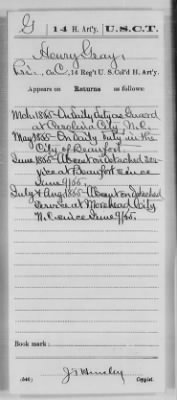 G | 14 H. Art'y. | U.S.C.T.
Henry Gray
Pvt., Co. C, 14 Reg't U.S. Col'd H. Art'y.
Appears on Returns as follows:
Mch. 1865-On daily duty as Guard
at Carolina City, N.C.
May 1865-On Daily Duty in the
City of Beaufort
June 1865-Absent on detached Ser-
vice at Beaufort since
June 9/65.
July & Aug. 1865-Absent on detached
Service at Morehead City
N.C. since June 9/65.
Book mark:
(546)
Copyist.